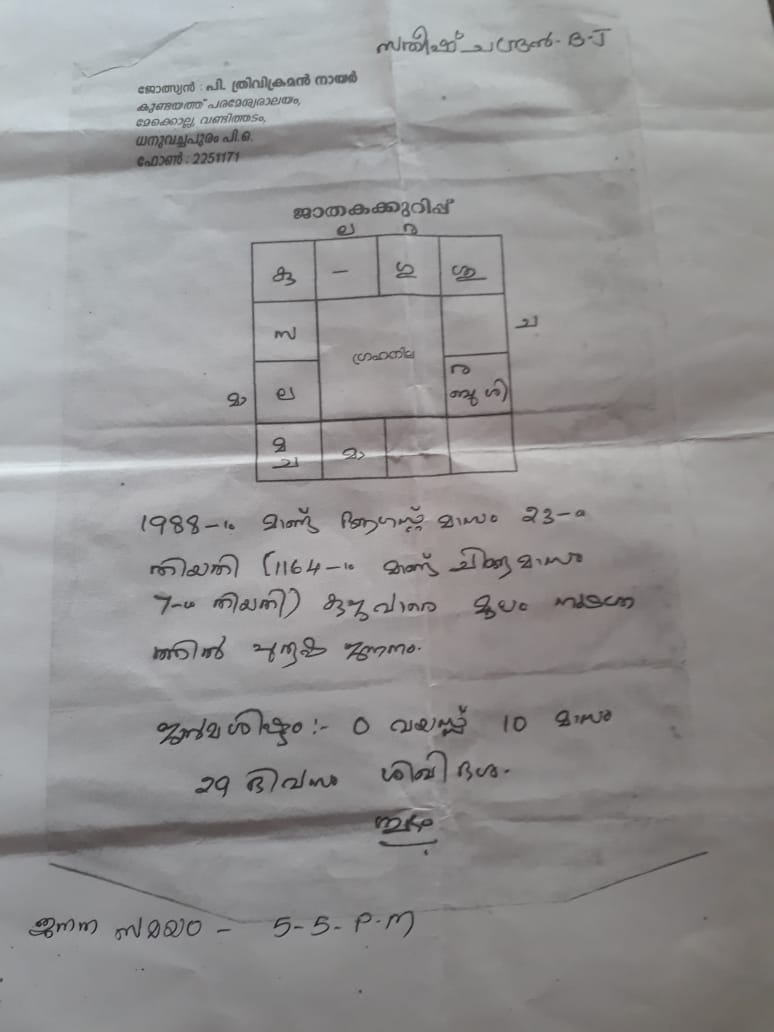 സതീഷ് ചന്ദ്രൻ. B.J
ജ്യോത്സ്യൻ : പി. ത്രിവിക്രമൻ നായർ
കുണ്ടയത്ത് പരമേശ്വരാലയം,
മേക്കൊല്ല, വണ്ടിത്തടം,
ധനുവച്ചപുരം പി.ഒ.
ഫോൺ : 2251171
ജാതകക്കുറിപ്പ്
ല ര
കു – ഗു ശു
സ ച
ഗ്രഹനില
മാ ല ര ബു ശി
മ ച മാ
1988-ാം മാണ്ട് ആഗസ്റ്റ് മാസം 23-ാ
തിയതി (1164-ാം മാണ്ട് ചിങ്ങമാസം
7-ാ തിയതി) കുജവാരെ മൂലം നക്ഷത്ര
ത്തിൽ പുരുഷ ജനനം.
ജന്മശിഷ്ടം :- 0 വയസ്സ് 10 മാസം
29 ദിവസം ശിഖി ദശ.
ശുഭം
ജനന സമയം – 5-5-P.M